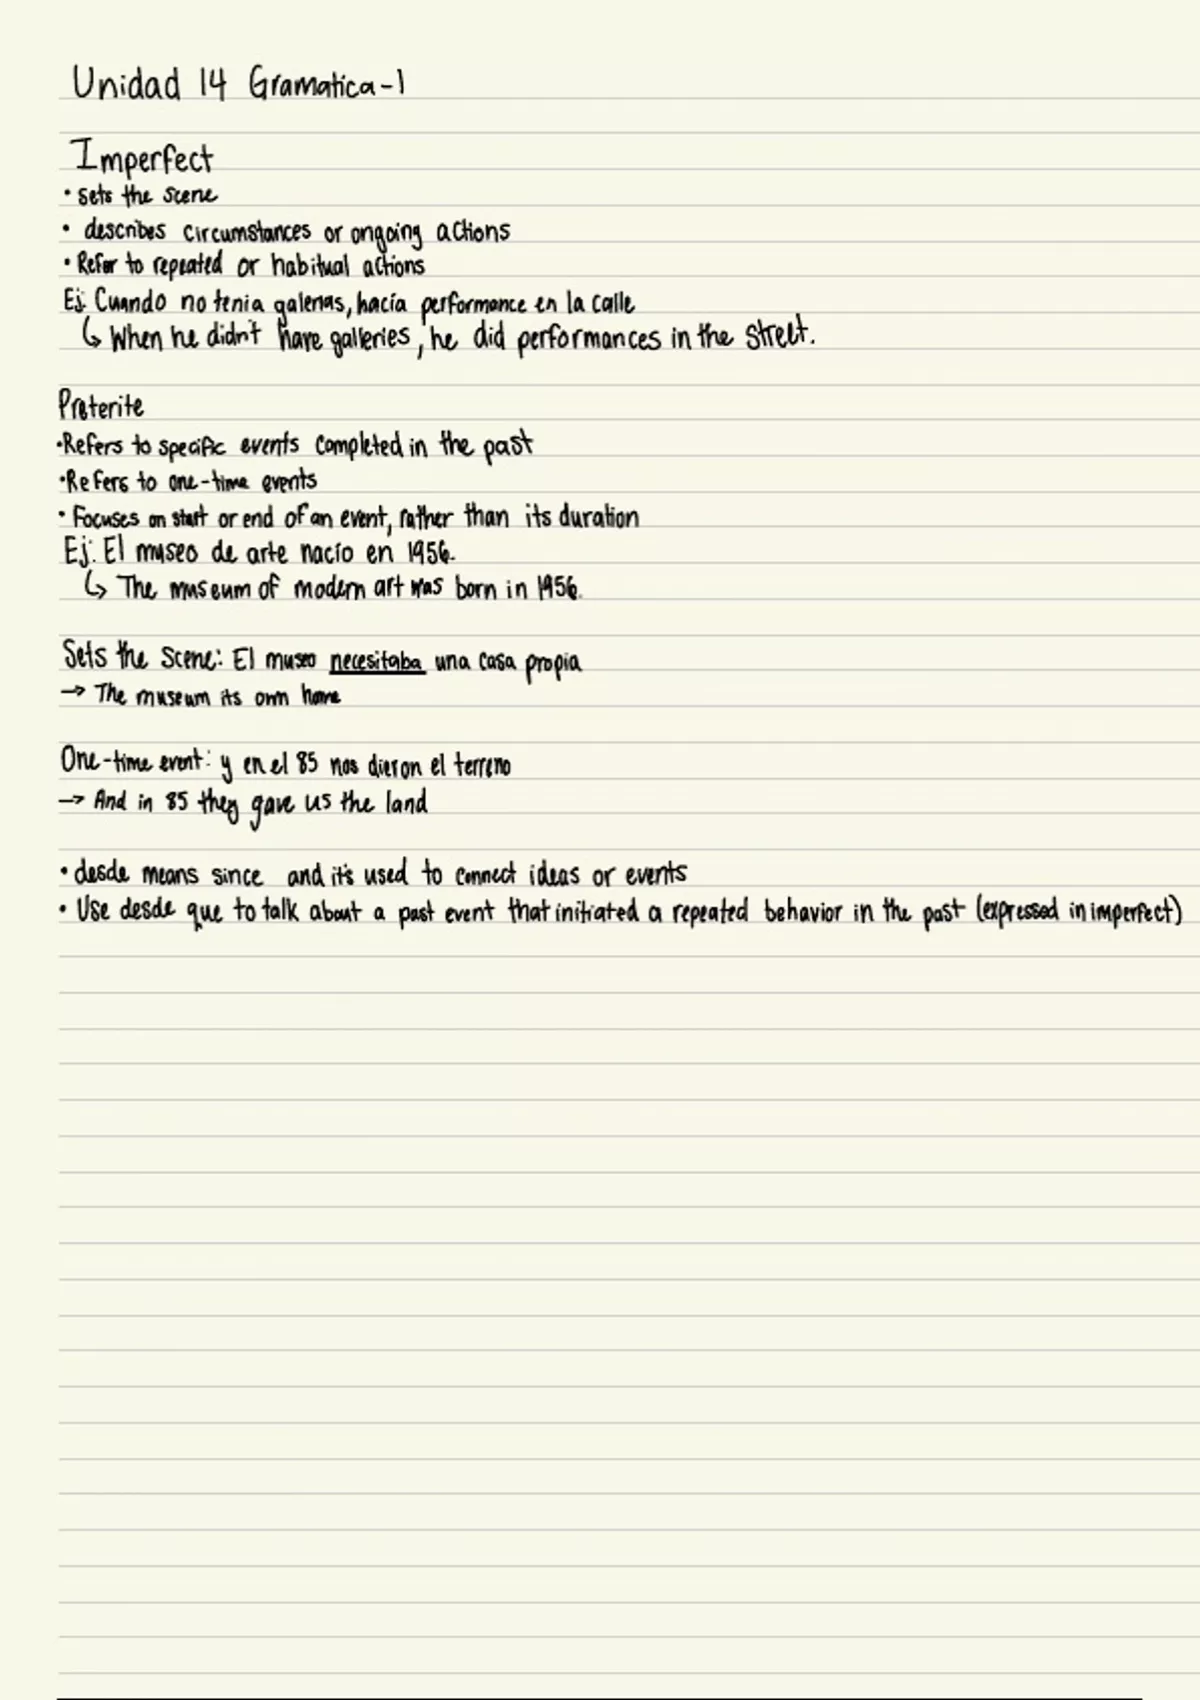 Unidad 14 Gramatica-1
Imperfect
• sets the scene
• describes circumstances or ongoing actions
• Refer to repeated or habitual actions
Ej: Cuando no tenia galerias, hacía performance en la calle
↳ When he didn't have galleries, he did performances in the street.
Preterite
•Refers to specific events completed in the past
•Refers to one-time events
• Focuses on start or end of an event, rather than its duration
Ej: El museo de arte nacío en 1956.
↳ The museum of modern art was born in 1956.
Sets the Scene: El museo necesitaba una casa propia
→ The museum its own home
One-time event: y en el 85 nos dieron el terreno
→ And in 85 they gave us the land
• desde means since and it's used to connect ideas or events
• Use desde que to talk about a past event that initiated a repeated behavior in the past (expressed in imperfect)